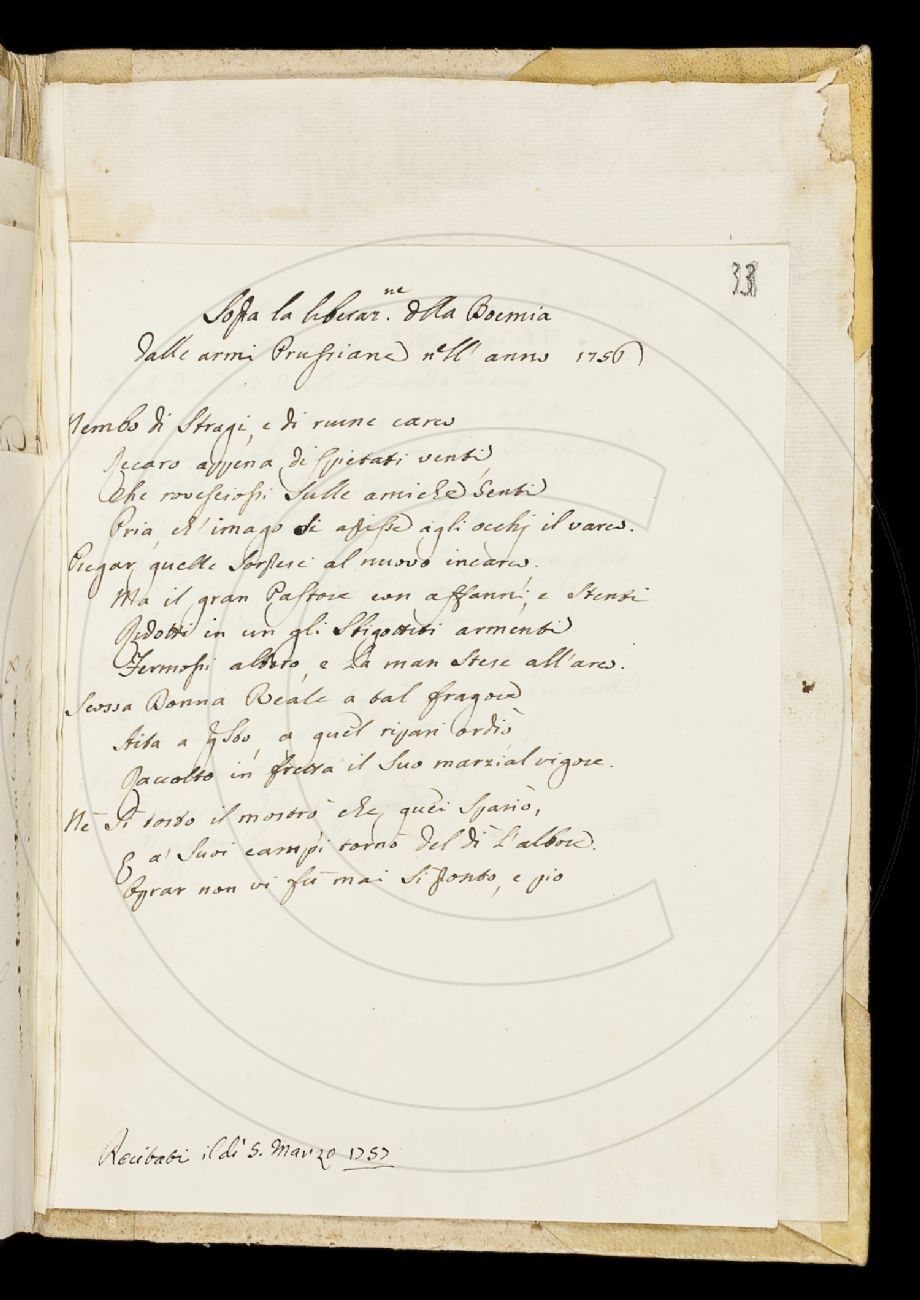 33
Sopra la liberaz.ne della Boemia
dalle armi Prussiane nell' anno 1756
Nembo di Stragi, e di ruine carco
Recaro appena dispietati venti
Che rovesciossi Sulle amiche Genti
Pria, ch' imago Si aprisse agli occhj il varco.
Piegar quelle Sorprese al nuovo incarco.
Ma il gran Pastore con affanni, e Stenti
Ridotti in un gli Sbigottiti armenti
Fermossi altero, e la man Stese all'arco.
Scossa Donna Reale a tal fragore
Aita a questo, a quel ripari ordiò
Raccolto in fretta il Suo marzial vigore.
Nè Sì tosto il mostrò che quei Spariò,
E a' Suoi campi tornò del dì l'albore.
Oprar non vi fù mai Sì pronto, e pio
Recitati il dì 5. Marzo 1757